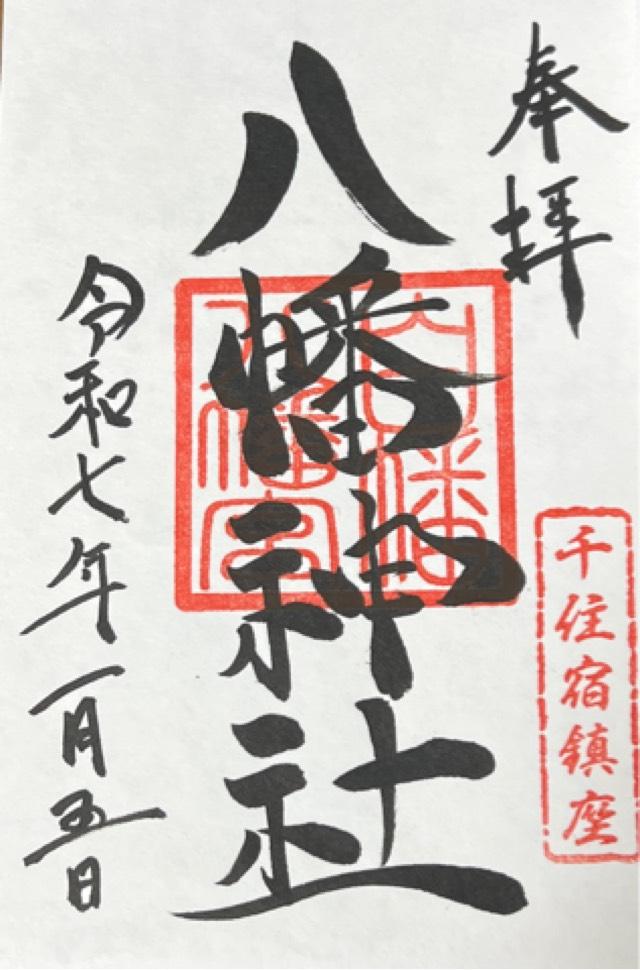 奉拝
千住宿鎮座
八幡神社
令和七年一月五日